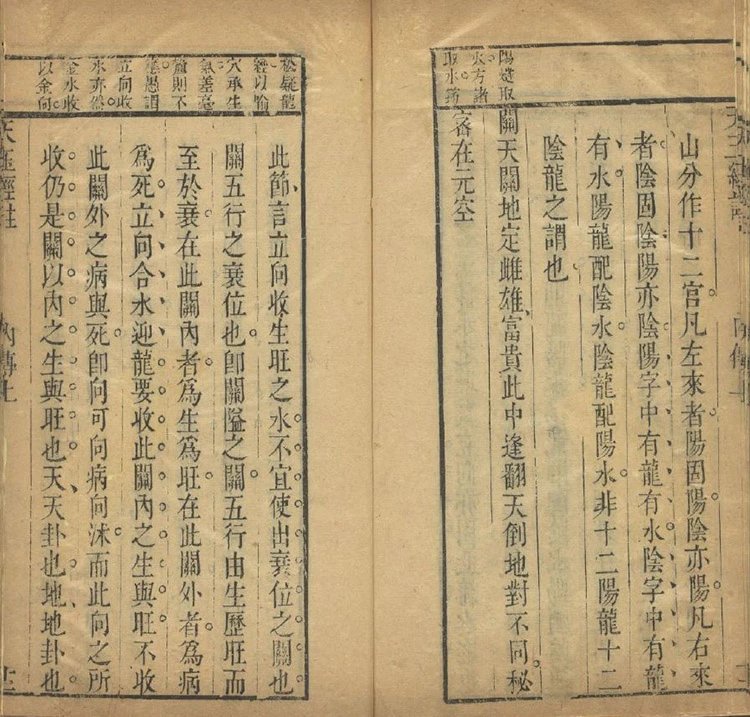 陽燧取
火方諸
取水
山分作十二宮凡左來者陽固陽陰亦陽凡右來
者陰固陰陽亦陰陽字中有龍有水陰字中有龍
有水陽龍配陰水陰龍配陽水非十二陽龍十二
陰龍之謂也
關天關地定雌雄富貴此中逢翻天倒地對不同秘
密在元空
疑龍
經以喻
穴承生
氣差毫
釐則不
應愚謂
立向收
水亦然
金水收
以金向
此節言立向收生旺之水不宜使出衰位之關也
關五行之衰位也卽關隘之關五行由生歷旺而
至於衰在此關內者爲生爲旺在此關外者爲病
爲死立向合水迎龍要收此關內之生與旺不收
此關外之病與死卽向可向病向沐而此向之所
收仍是關以內之生與旺也天天卦也地地卦也
天玉經註
內傳上